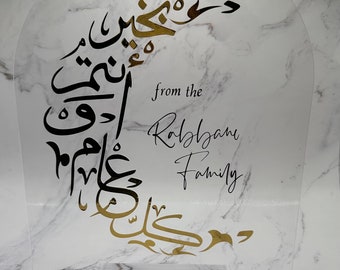 كل
عام
و
أنتم
بخير
from the
Rabbani
Family